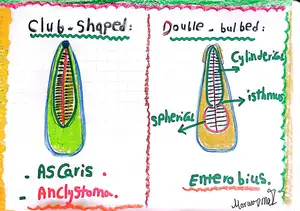 Club-shaped:
- Ascaris
- Anclystoma.
Double-bulbed:
Cylinderical
isthmus
spherical
Enterobius.